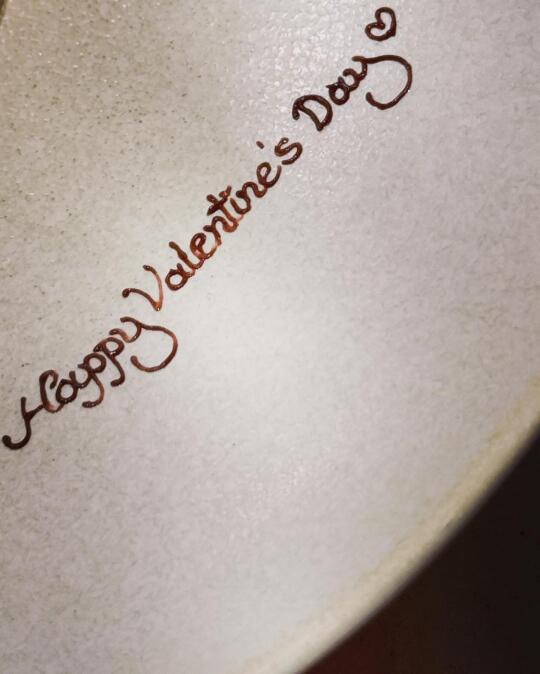 Happy Valentine's Day ♡